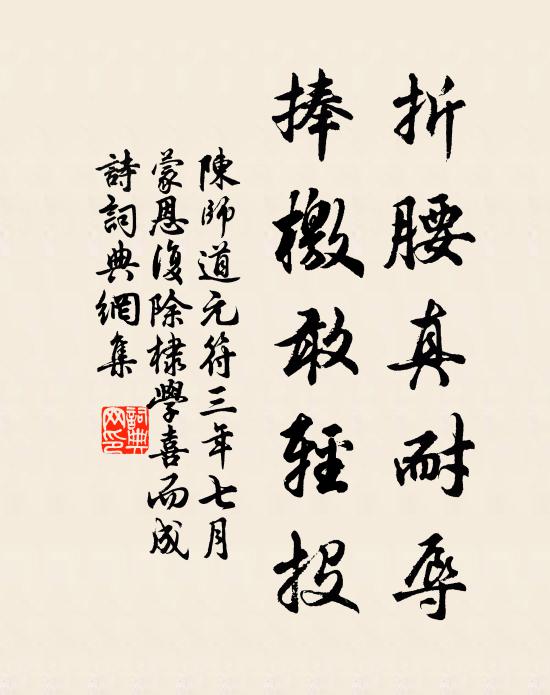 折腰真耐辱
捧檄敢輕投
陳師道元符三年七月
蒙恩復除棣學喜而成
詩詞典網集
詞典网印